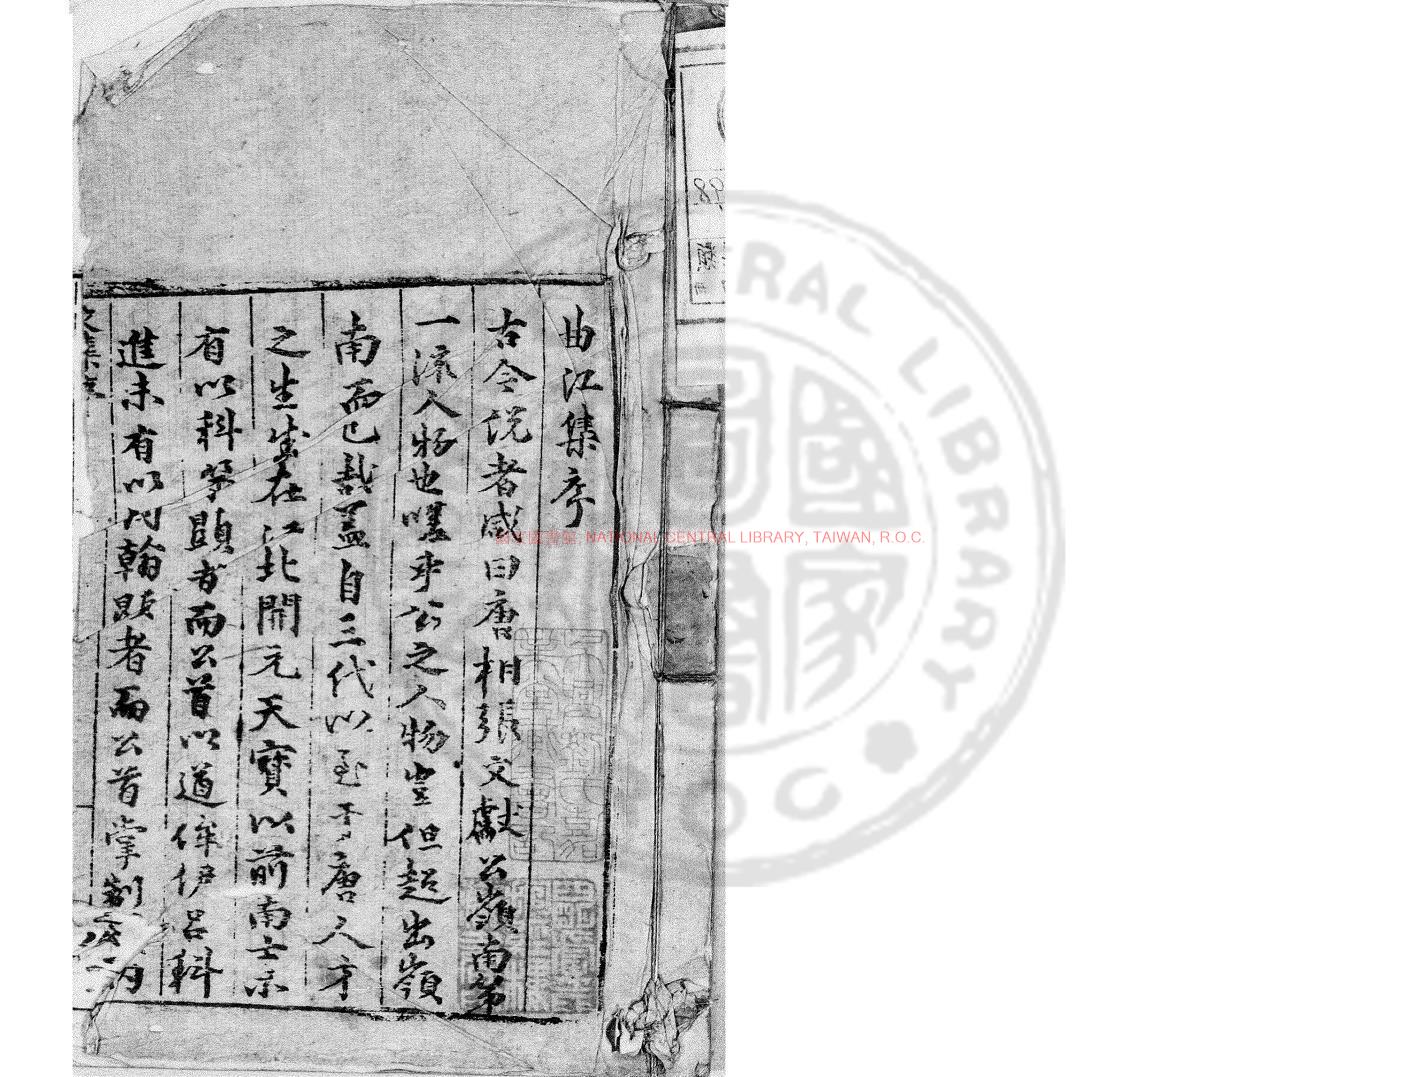 曲江集序
古今說者咸曰唐相張文獻公嶺南第
一流人物也嘆乎公之人物豈但超出嶺
南而已哉蓋自三代以至于唐人才
之生盛在江北開元天寶以前南士未
有以科第顯者而公首以道侔伊呂科
進未有以詞翰顯者而公首掌制誥內
文集序
國家圖書館, NATIONAL CENTRAL LIBRARY, TAIWAN, R.O.C.
CENTRAL LIBRARY